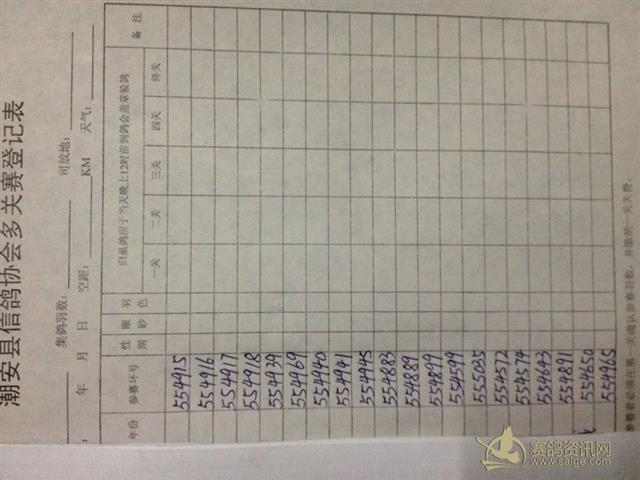 潮安县信鸽协会多关赛登记表
集鸽羽数： 司放地：
： 年 月 日 空距： KM 天气：
年份 参赛环号 性别 眼砂 羽色 归巢鸽应于当天晚上12时前到鸽会盖章验鸽 备注
一关 二关 三关 四关 终关
554915
554916
554917
554918
554939
554969
554940
554941
554945
554883
554889
554899
554599
555035
554572
554574
554643
554891
554650
554965
参赛者必须在第一关确认参赛羽数，并缴纳一关关费。
赛鸽资讯网
www.saige.com